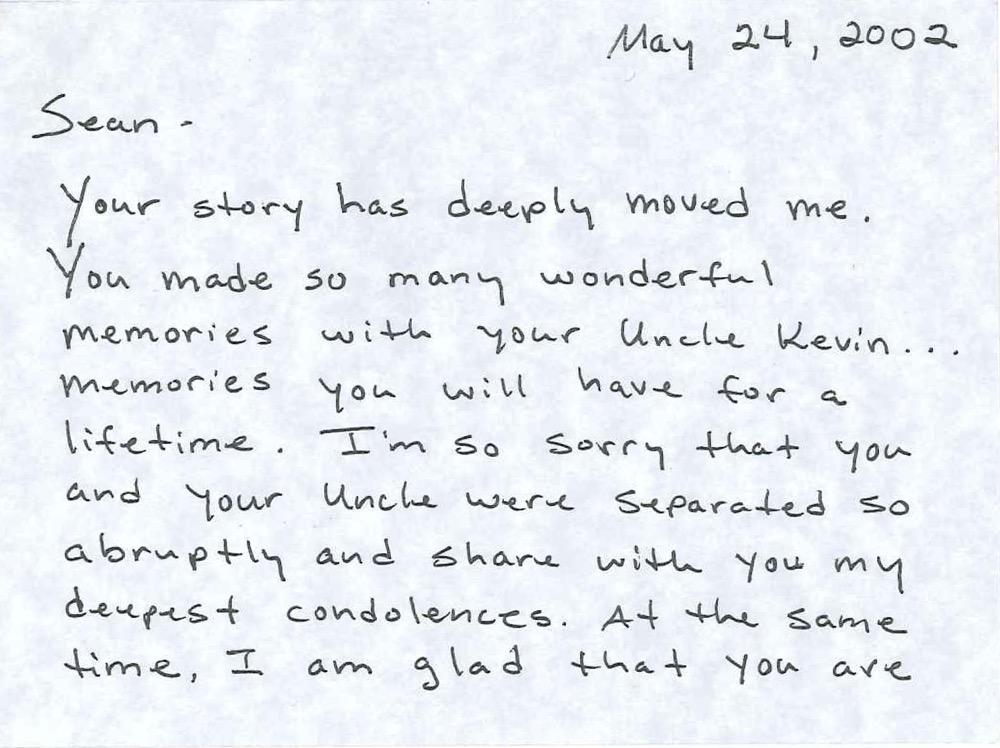 May 24, 2002
Sean -
Your story has deeply moved me.
You made so many wonderful
memories with your Uncle Kevin...
memories you will have for a
lifetime. I'm so sorry that you
and your Uncle were separated so
abruptly and share with you my
deepest condolences. At the same
time, I am glad that you are